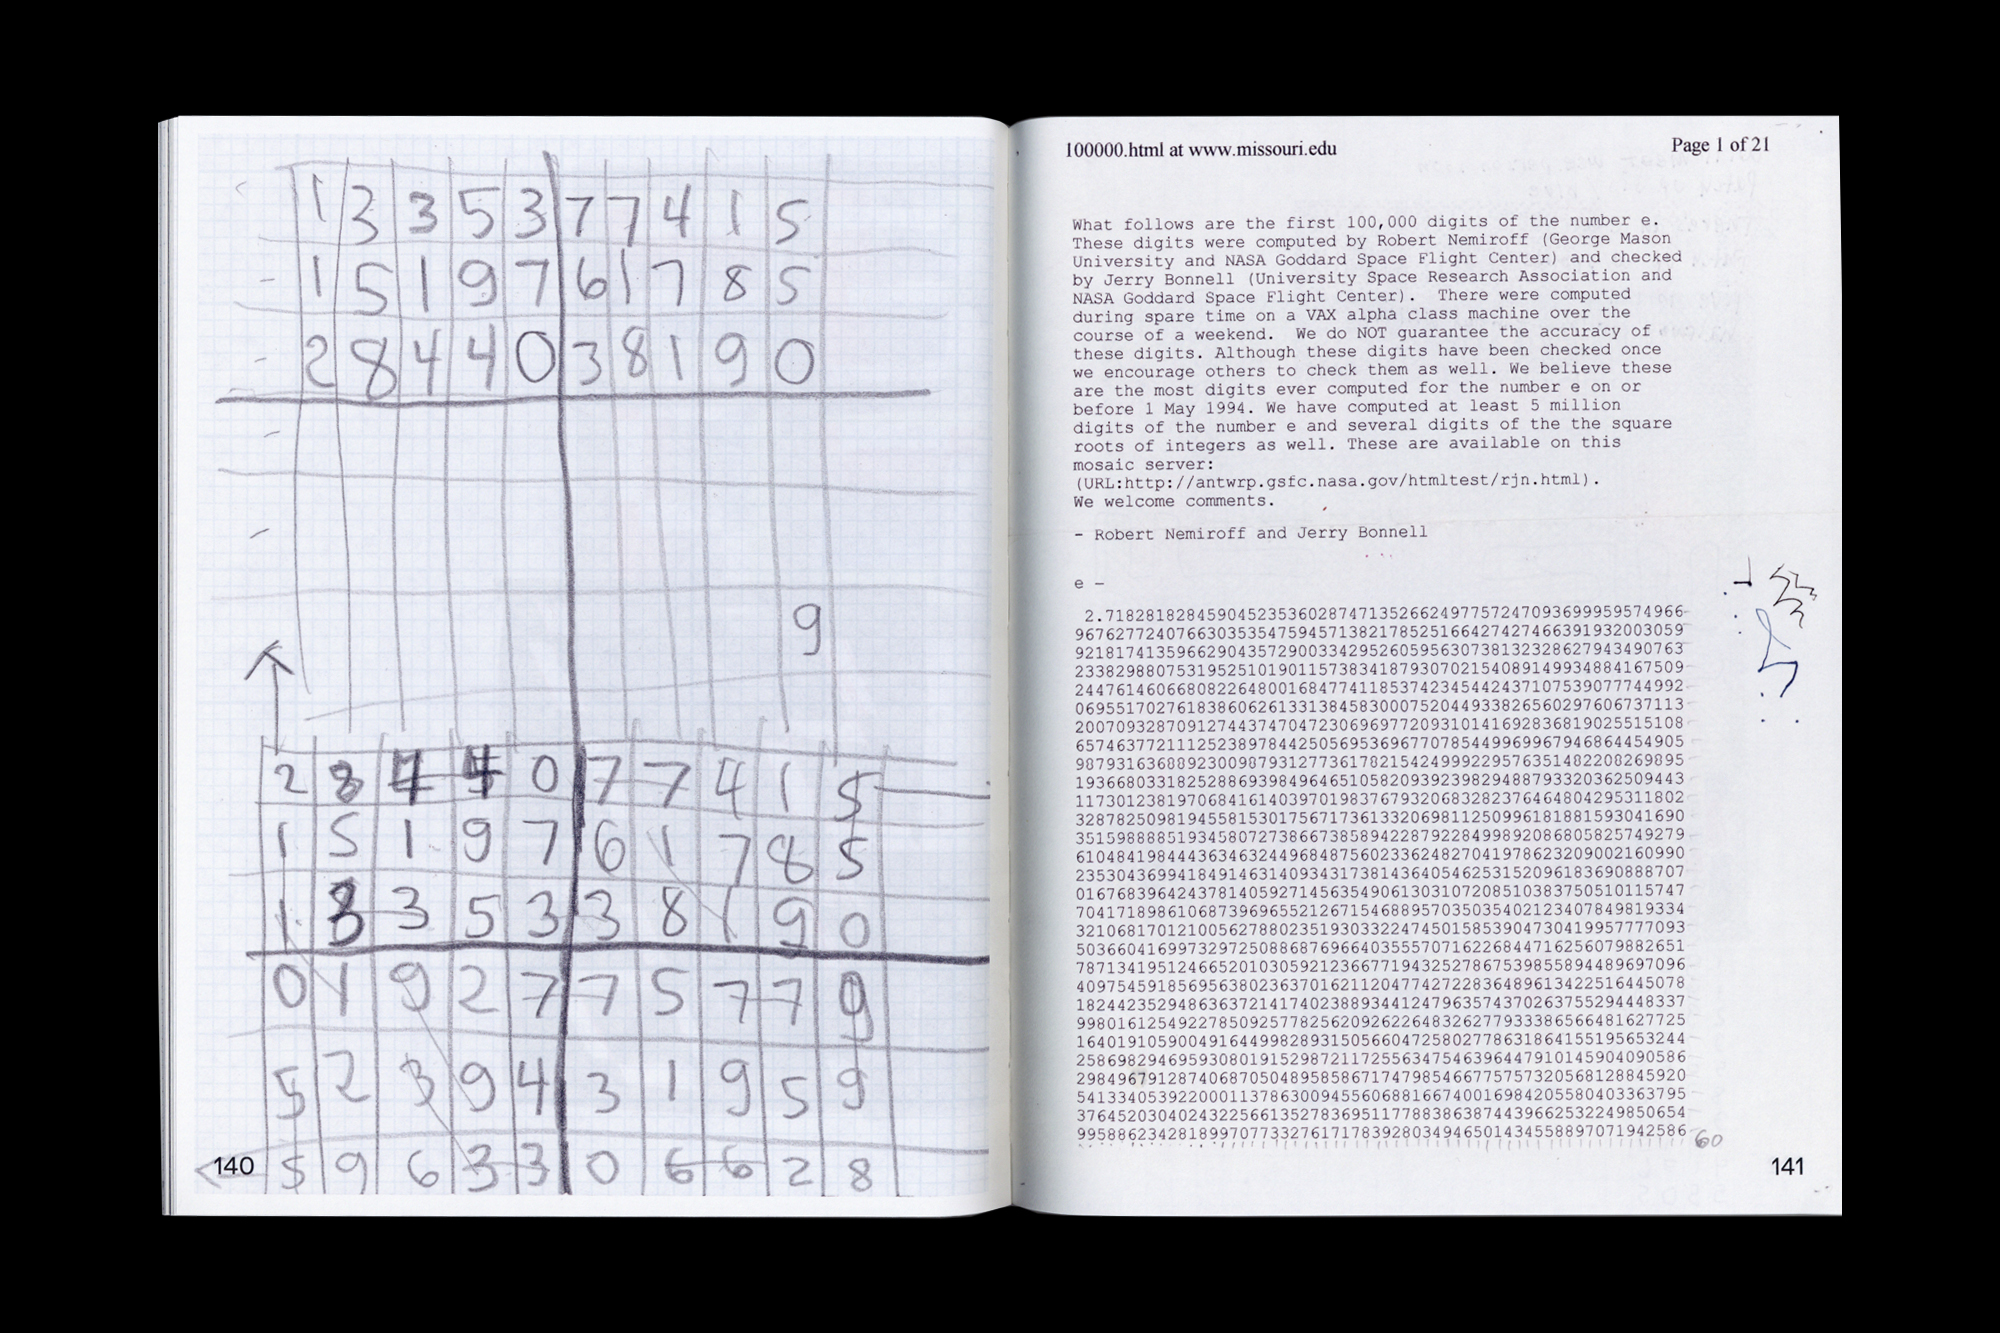 1 3 3 5 3 7 7 4 1 5
1 5 1 9 7 6 1 7 8 5
2 8 4 4 0 3 8 1 9 0
9
2 8 4 4 0 7 7 4 1 5
1 5 1 9 7 6 1 7 8 5
1 3 3 5 3 3 8 1 9 0
0 1 9 2 7 7 5 7 7 9
5 2 3 9 4 3 1 9 5 9
5 9 6 3 3 0 6 6 2 8
140
100000.html at www.missouri.edu
Page 1 of 21
What follows are the first 100,000 digits of the number e.
These digits were computed by Robert Nemiroff (George Mason
University and NASA Goddard Space Flight Center) and checked
by Jerry Bonnell (University Space Research Association and
NASA Goddard Space Flight Center).  There were computed
during spare time on a VAX alpha class machine over the
course of a weekend.  We do NOT guarantee the accuracy of
these digits. Although these digits have been checked once
we encourage others to check them as well. We believe these
are the most digits ever computed for the number e on or
before 1 May 1994. We have computed at least 5 million
digits of the number e and several digits of the the square
roots of integers as well. These are available on this
mosaic server:
(URL:http://antwrp.gsfc.nasa.gov/htmltest/rjn.html).
We welcome comments.
- Robert Nemiroff and Jerry Bonnell
e -
2.71828182845904523536028747135266249775724709369995957496​6-
967627724076630353547594571382178525166427427466391932003059
921817413596629043572900334295260595630738132328627943490763
233829880753195251019011573834187930702154089149934884167509
244761460668082264800168477411853742345442437107539077744992
069551702761838606261331384583000752044933826560297606737113
200709328709127443747047230696977209310141692836819025515108
657463772111252389784425056953696770785449969967946864454905
987931636889230098793127736178215424999229576351482208269895
193668033182528869398496465105820939239829488793320362509443
117301238197068416140397019837679320683282376464804295311802
328782509819455815301756717361332069811250996181881593041690
351598888519345807273866738589422879228499892086805825749279
610484198444363463244968487560233624827041978623209002160990
235304369941849146314093431738143640546253152096183690888707
016768396424378140592714563549061303107208510383750510115747
704171898610687396965521267154688957035035402123407849819334
321068170121005627880235193033224745015853904730419957777093
503660416997329725088687696640355570716226844716256079882651
787134195124665201030592123667719432527867539855894489697096
409754591856956380236370162112047742722836489613422516445078
182442352948636372141740238893441247963574370263755294448337
998016125492278509257782562092622648326277933386566481627725
164019105900491644998289315056604725802778631864155195653244
258698294695930801915298721172556347546396447910145904090586
298496791287406870504895858671747985466775757320568128845920
541334053922000113786300945560688166740016984205580403363795
376452030402432256613527836951177883863874439662532249850654
995886234281899707733276171783928034946501434558897071942586
60
141